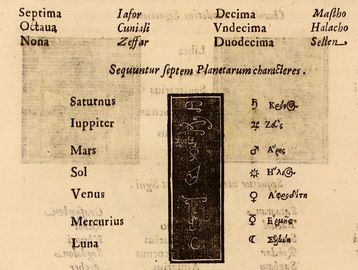 Septima Iafor Decima Mastho
Octaua Cuniali Vndecima Halacho
Nona Zeffar Duodecima Sellen
Sequuntur septem Planetarum characteres.
Saturnus ♄
Iuppiter ♃
Mars ♂ Ἄρης
Sol ☼
Venus ♀ Ἀφροδίτη
Mercurius ☿
Luna ☾